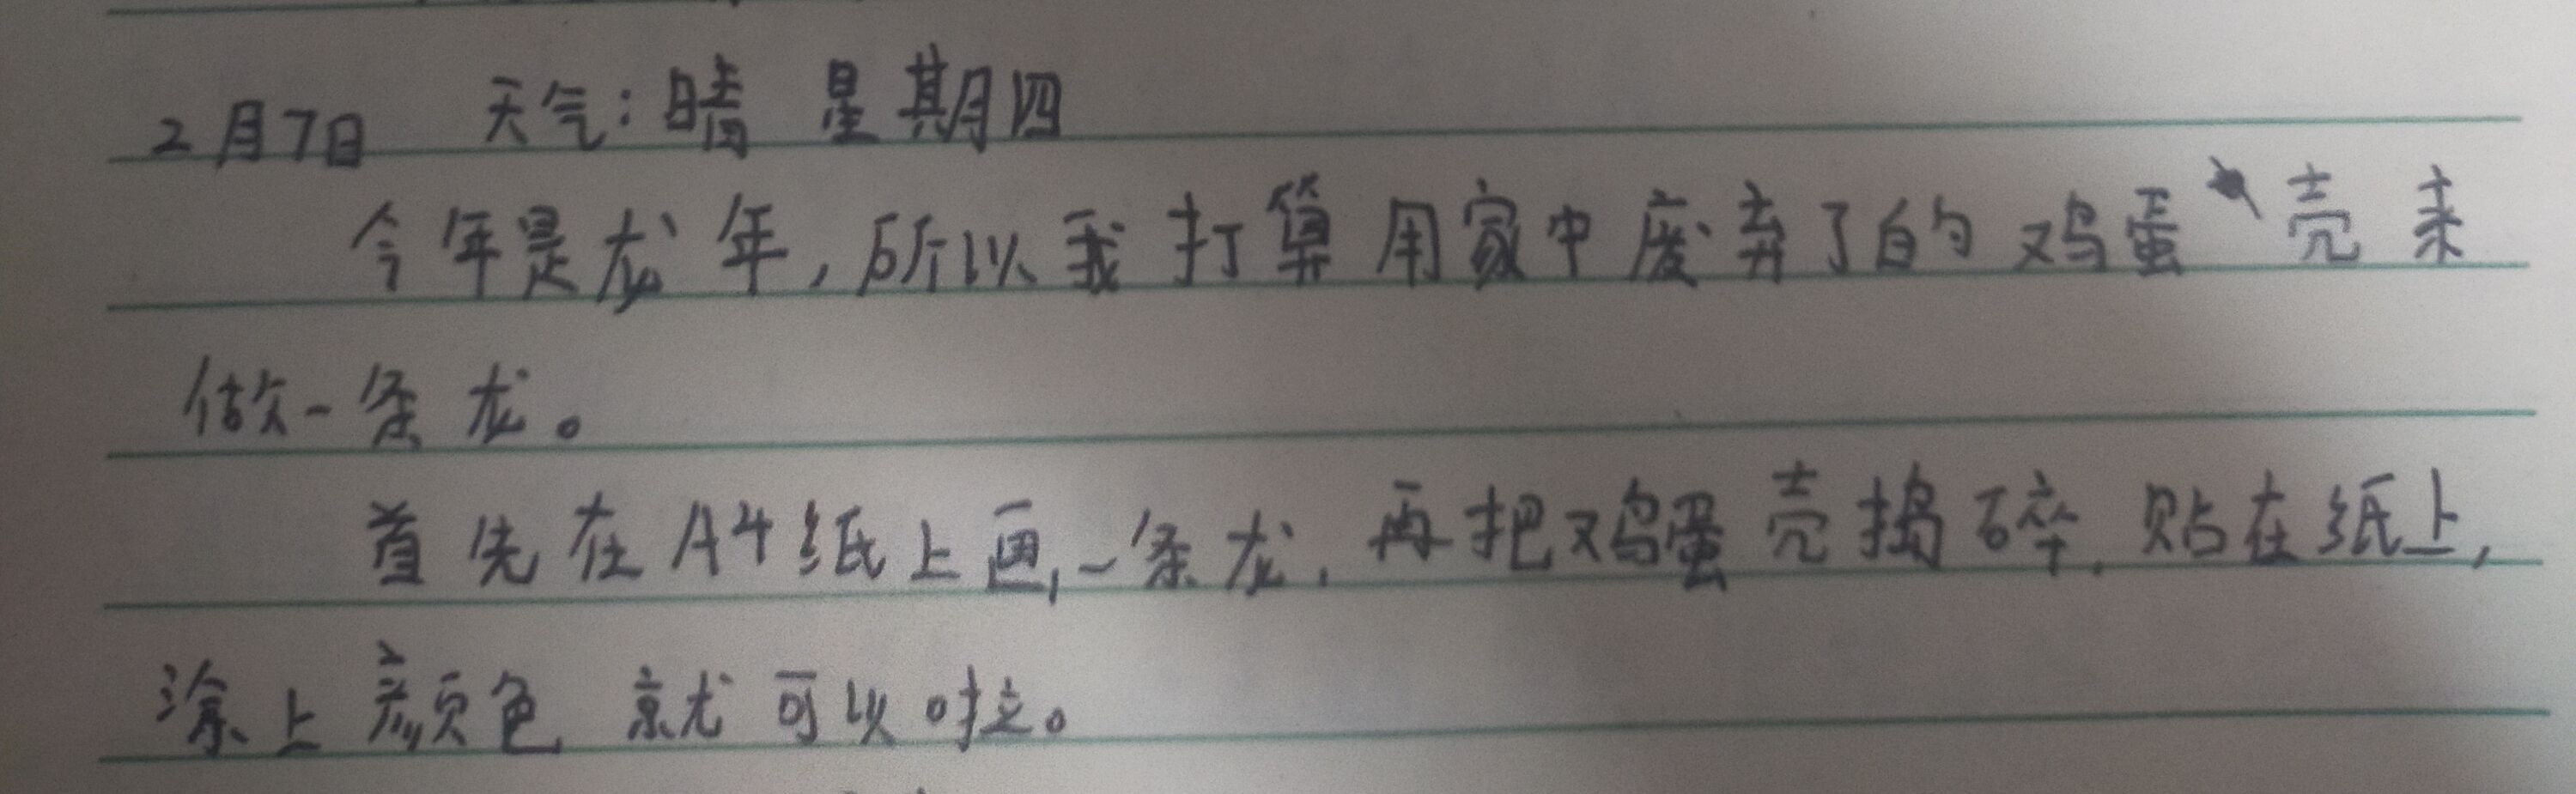 2月7日 天气：晴 星期四
今年是龙年，所以我打算用家中废弃了的鸡蛋壳来
做一条龙。
首先在A4纸上画一条龙，再把鸡蛋壳捣碎，贴在纸上，
涂上颜色就可以啦。